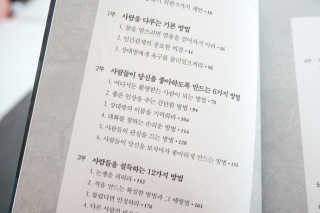 1부 사람을 다루는 기본 방법
1. 꿀을 얻으려면 벌통을 걷어차지 마라 • 26
2. 인간관계의 중요한 비결 • 44
3. 상대방에게 욕구를 불러일으켜라
2부 사람들이 당신을 좋아하도록 만드는 6가지 방법
1. 어디서든 환영받는 사람이 되는 방법
2. 좋은 인상을 주는 간단한 방법
3. 상대방의 이름을 기억하라
4. 대화를 잘하는 손쉬운 방법
5. 사람들의 관심을 끄는 방법
6. 사람들이 당신을 보자마자 좋아하게 만드는 방법
3부 사람들을 설득하는 12가지 방법
1. 논쟁을 피하라 • 152
2. 적을 만드는 확실한 방법과 그 예방법
3. 틀렸다면 인정하라
4. 다른 사람의